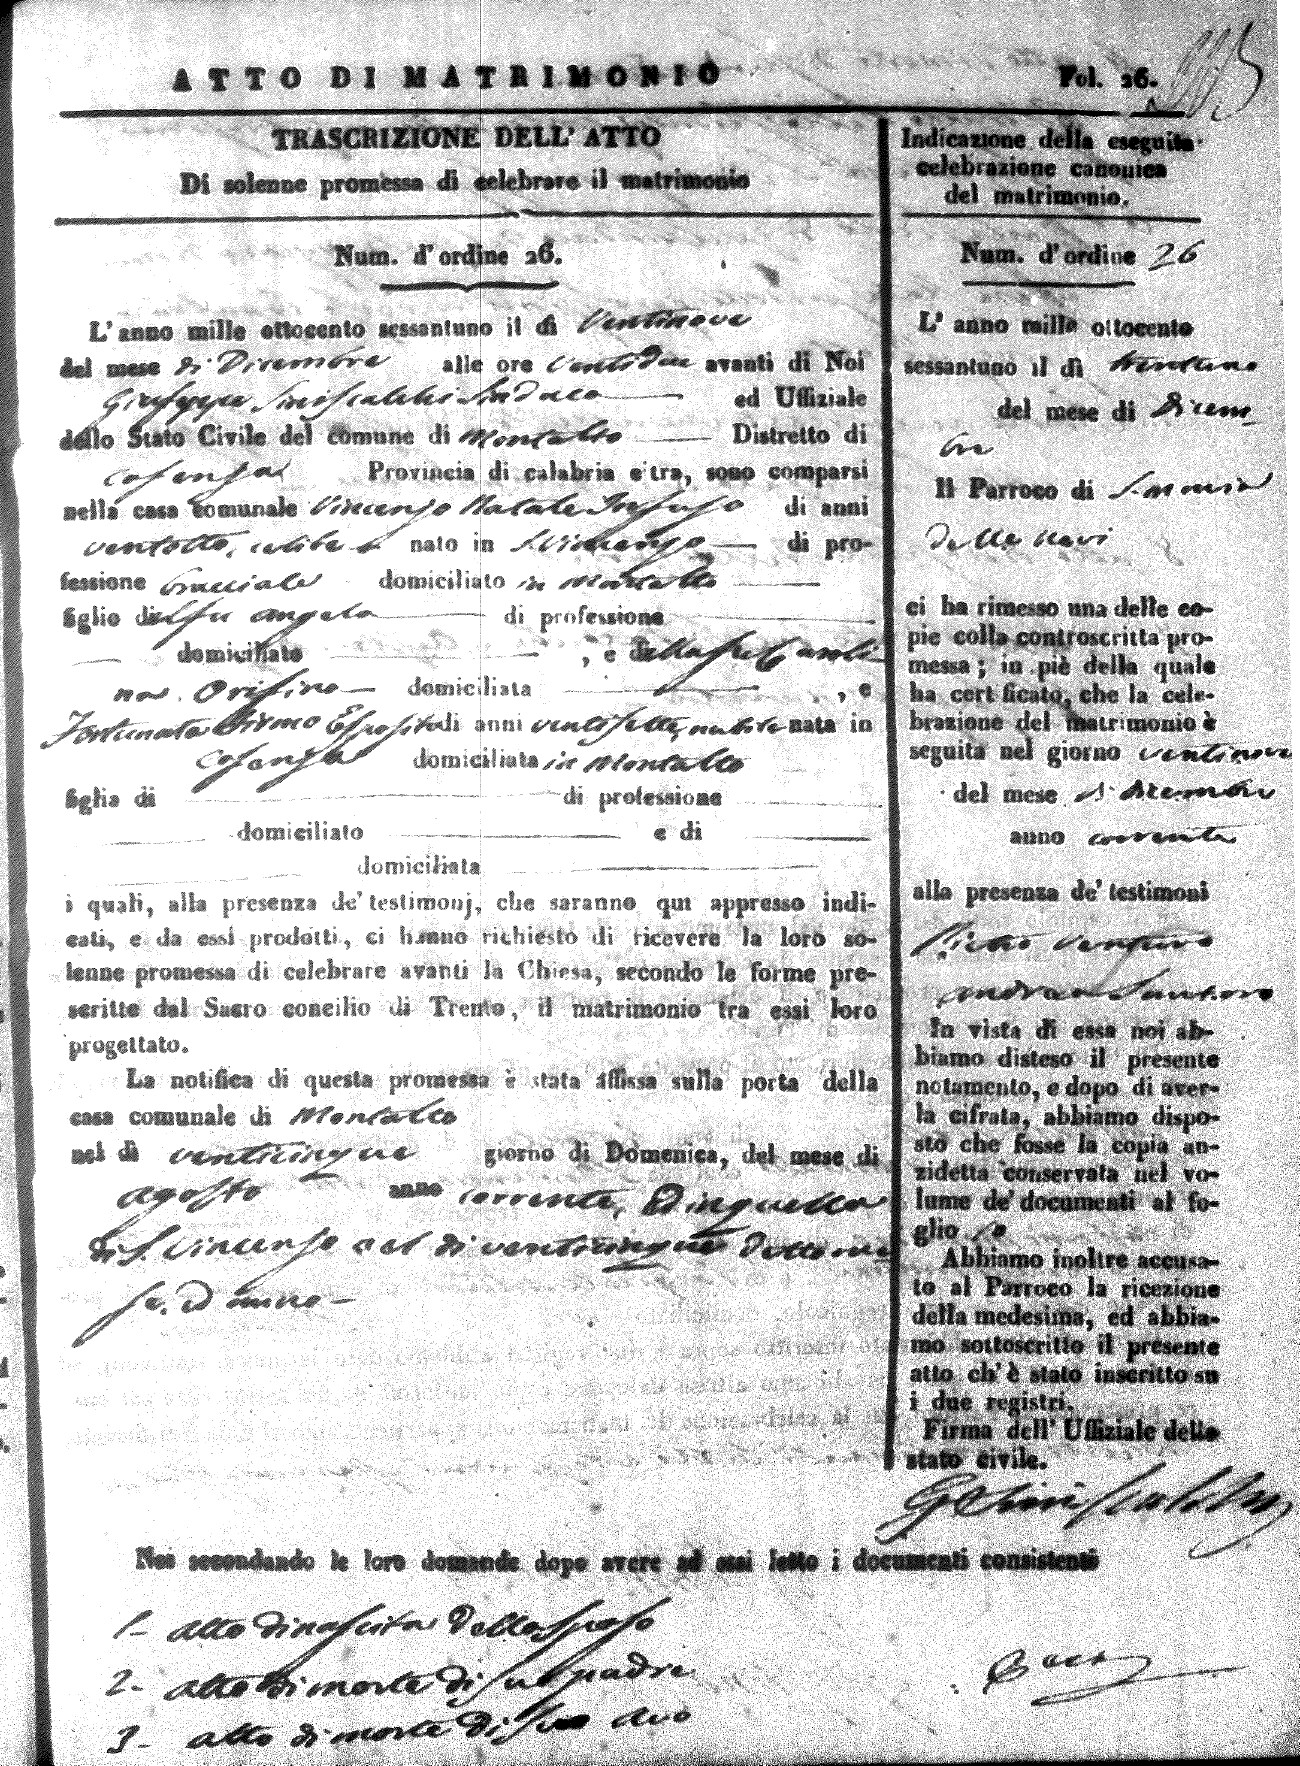 ATTO DI MATRIMONIO
Fol. 26.
TRASCRIZIONE DELL' ATTO
Di solenne promessa di celebrare il matrimonio
Num. d'ordine 26.
L'anno mille ottocento sessantuno il dì Ventinove
del mese di Dicembre alle ore ventidue avanti di Noi
Giuseppe Siniscalchi Sindaco ed Uffiziale
dello Stato Civile del comune di Montalto Distretto di
Cosenza Provincia di calabria citra, sono comparsi
nella casa comunale Vincenzo Natale di anni
ventotto, celibe nato in S. Vincenzo di pro-
fessione bracciale domiciliato in Montalto
figlio del fu Angelo di professione
domiciliato , e della fu Caroli
na Orifino domiciliata , e
Fortunata Esposito di anni ventisette, nubile nata in
Cosenza domiciliata in Montalto
figlia di di professione
domiciliato e di
domiciliata
i quali, alla presenza de' testimonj, che saranno qui appresso indi-
cati, e da essi prodotti, ci hanno richiesto di ricevere la loro so-
lenne promessa di celebrare avanti la Chiesa, secondo le forme pre-
scritte dal Sacro concilio di Trento, il matrimonio tra essi loro
progettato.
La notifica di questa promessa è stata affissa sulla porta della
casa comunale di Montalto
nel dì venticinque giorno di Domenica, del mese di
Agosto anno corrente, ed in quella
di S. Vincenzo nel dì venticinque detto me
se, ed anno
Indicazione della eseguita
celebrazione canonica
del matrimonio.
Num. d'ordine 26
L' anno mille ottocento
sessantuno il dì trentuno
del mese di Dicem
bre
Il Parroco di S. Maria
della Nevi
ci ha rimesso una delle co-
pie colla controscritta pro-
messa; in piè della quale
ha certificato, che la cele-
brazione del matrimonio è
seguita nel giorno ventinove
del mese di Dicembre
anno corrente
alla presenza de' testimoni
Pietro Venturo
Andrea Santoro
In vista di essa noi ab-
biamo disteso il presente
notamento, e dopo di aver-
la cifrata, abbiamo dispo-
sto che fosse la copia an-
zidetta conservata nel vo-
lume de' documenti al fo-
glio
Abbiamo inoltre accusa-
to al Parroco la ricezione
della medesima, ed abbia-
mo sottoscritto il presente
atto ch'è stato inscritto su
i due registri.
Firma dell' Uffiziale dello
stato civile.
G Siniscalchi
Noi secondando le loro domande dopo avere ad essi letto i documenti consistenti
1- atto di nascita dello sposo
2- atto di morte di suo padre
3- atto di morte di suo avo